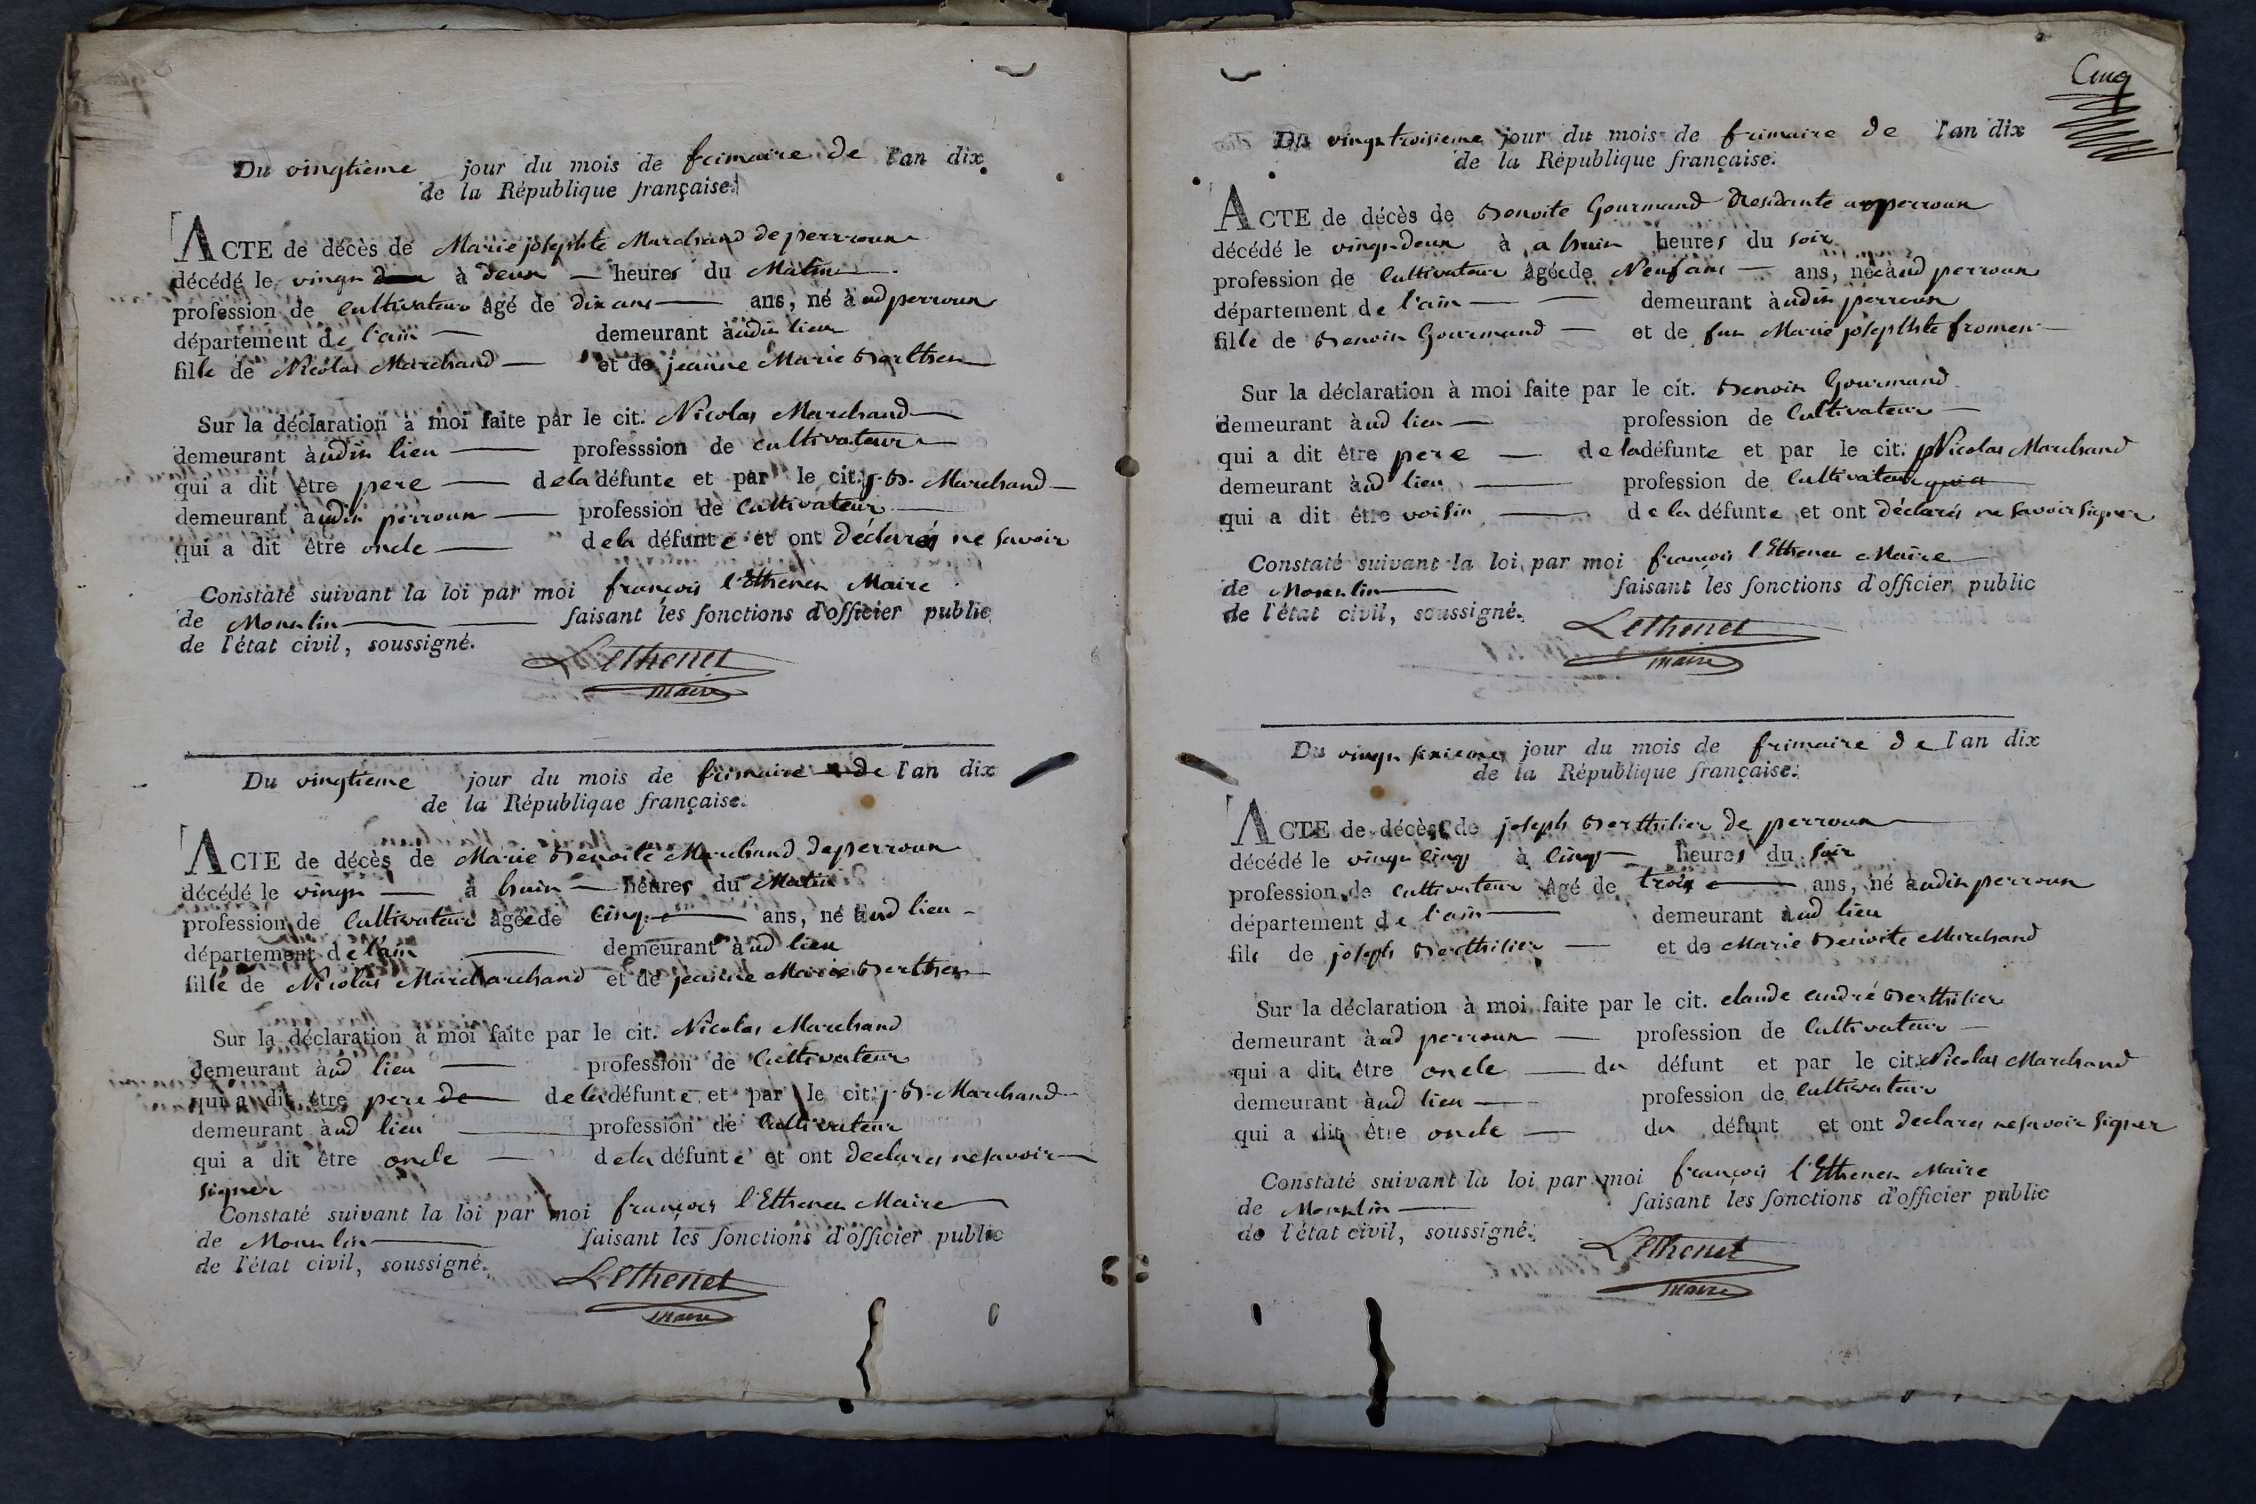 Du vingtieme jour du mois de frimaire de l'an dix
de la République française.
ACTE de décès de Marie josephte Marchand de perroun
décédé le vingt à deux heures du Matin
profession de Cultivateur âgé de dix ans ans, né à ud perroun
département de l'ain demeurant à udit lieu
fille de Nicolas Marchand et de jeanne Marie Berthet
Sur la déclaration à moi faite par le cit. Nicolas Marchand
demeurant à udit lieu professsion de cultivateur
qui a dit être pere de la défunte et par le cit. j. B. Marchand
demeurant à udit perroun profession de Cultivateur
qui a dit être oncle de la défunte et ont déclarés ne savoir
Constaté suivant la loi par moi françois l'Ethenet Maire
de faisant les fonctions d'officier public
de l'état civil, soussigné.
L'Ethenet
Maire
Du vingtieme jour du mois de frimaire de l'an dix
de la République française.
ACTE de décès de Marie Benoite Marchand de perroun
décédé le vingt à huit heures du Matin
profession de Cultivateur âgée de Cinq ans, né à ud lieu
département de l'ain demeurant à ud lieu
fille de Nicolas Marcharchand et de jeanne Marie Berthet
Sur la déclaration à moi faite par le cit. Nicolas Marchand
demeurant à ud lieu profession de Cultivateur
qui a dit être pere de de la défunte et par le cit. j. B. Marchand
demeurant à ud lieu profession de Cultivateur
qui a dit être oncle de la défunte et ont declarés ne savoir
signer
Constaté suivant la loi par moi françois l'Ethenet Maire
de faisant les fonctions d'officier public
de l'état civil, soussigné.
L'Ethenet
Maire
Cinq
Du vingt troisieme jour du mois de frimaire de l'an dix
de la République française.
ACTE de décès de Benoite Gourmand Residante a perroun
décédé le vingt deux à a huit heures du soir
profession de Cultivateur âgée de Neuf ans ans, née à ud perroun
département de l'ain demeurant à udit perroun
fille de Benoit Gourmand et de feu Marie josephte froment
Sur la déclaration à moi faite par le cit. Benoit Gourmand
demeurant à ud lieu profession de Cultivateur
qui a dit être pere de la défunte et par le cit. Nicolas Marchand
demeurant à ud lieu profession de Cultivateur qui a
qui a dit être voisin de la défunte et ont déclarés ne savoir signer
Constaté suivant la loi par moi françois l'Ethenet Maire
de faisant les fonctions d'officier public
de l'état civil, soussigné.
L'Ethenet
Maire
Du vingt sixieme jour du mois de frimaire de l'an dix
de la République française.
ACTE de décès de joseph Berthilier de perroun
décédé le vingt cinq à cinq heures du soir
profession de Cultivateur âgé de trois ans, né à udit perroun
département de l'ain demeurant à ud lieu
fils de joseph Berthilier et de Marie Benoite Marchand
Sur la déclaration à moi faite par le cit. claude andré Berthilier
demeurant à ud perroun profession de Cultivateur
qui a dit être oncle du défunt et par le cit. Nicolas Marchand
demeurant à ud lieu profession de Cultivateur
qui a dit être oncle du défunt et ont declares ne savoir signer
Constaté suivant la loi par moi françois l'Ethenet Maire
de faisant les fonctions d'officier public
de l'état civil, soussigné.
L'Ethenet
Maire